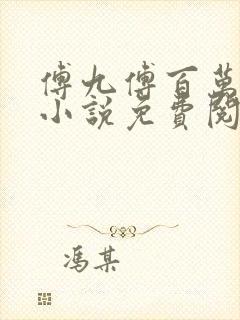 傅九傅百萬
小說免費閱
馮某